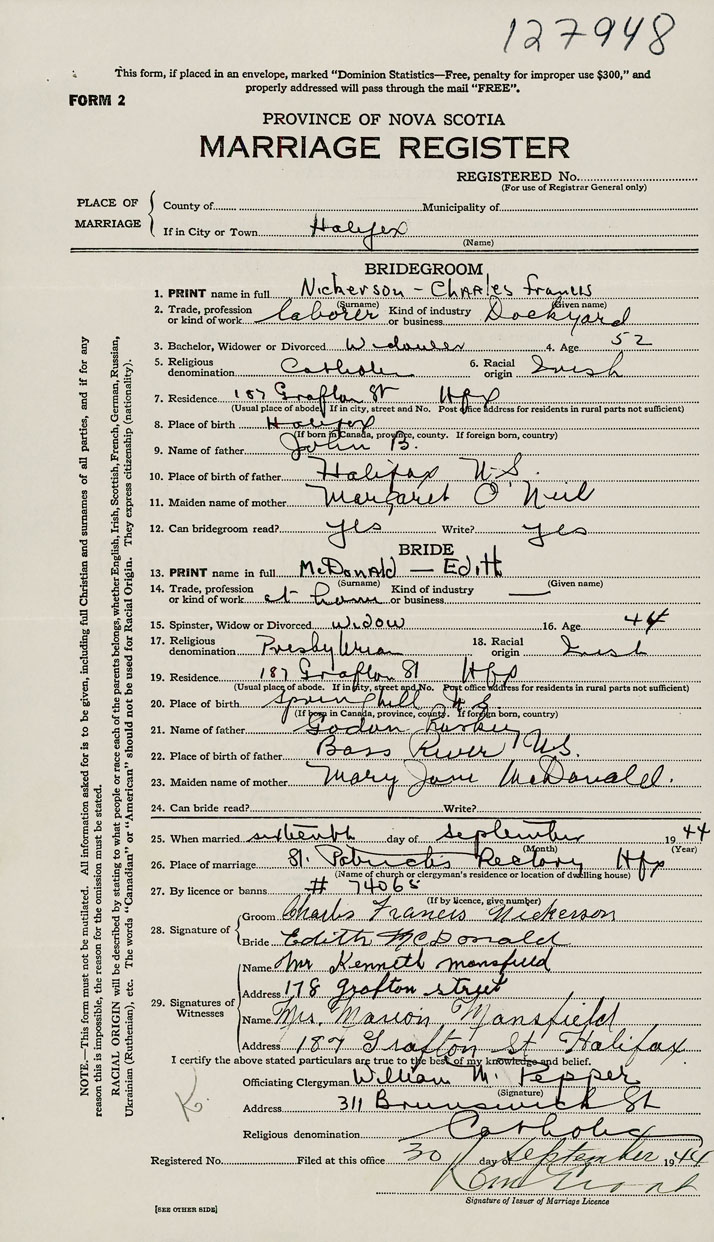 127948
This form, if placed in an envelope, marked "Dominion Statistics—Free, penalty for improper use $300," and
properly addressed will pass through the mail "FREE".
FORM 2
PROVINCE OF NOVA SCOTIA
MARRIAGE REGISTER
REGISTERED No.
(For use of Registrar General only)
PLACE OF MARRIAGE
County of Municipality of
If in City or Town Halifax
(Name)
BRIDEGROOM
1. PRINT name in full Nickerson - Charles Francis
(Surname) (Given name)
2. Trade, profession or kind of work laborer Kind of industry or business Dockyard
3. Bachelor, Widower or Divorced Widower 4. Age 52
5. Religious denomination Catholic 6. Racial origin Irish
7. Residence 187 Grafton St Hfx
(Usual place of abode. If in city, street and No. Post office address for residents in rural parts not sufficient)
8. Place of birth Halifax
(If born in Canada, province, county. If foreign born, country)
9. Name of father John B.
10. Place of birth of father Halifax N.S.
11. Maiden name of mother Margaret O'Neil
12. Can bridegroom read? yes Write? yes
BRIDE
13. PRINT name in full McDonald — Edith
(Surname) (Given name)
14. Trade, profession or kind of work at home Kind of industry or business —
15. Spinster, Widow or Divorced widow 16. Age 44
17. Religious denomination Presbyterian 18. Racial origin Irish
19. Residence 187 Grafton St Hfx
(Usual place of abode. If in city, street and No. Post office address for residents in rural parts not sufficient)
20. Place of birth Springhill N.S.
(If born in Canada, province, county. If foreign born, country)
21. Name of father
22. Place of birth of father Bass River N.S.
23. Maiden name of mother Mary Jane McDonald.
24. Can bride read? Write?
25. When married sixteenth day of September 1944
(Month) (Year)
26. Place of marriage St. Patrick's Rectory Hfx
(Name of church or clergyman's residence or location of dwelling house)
27. By licence or banns # 74068
(If by licence, give number)
28. Signature of
Groom Charles Francis Nickerson
Bride Edith McDonald
29. Signatures of Witnesses
Name Mr Kenneth Mansfield
Address 178 Grafton street
Name Mrs. Marion Mansfield
Address 187 Grafton St Halifax.
I certify the above stated particulars are true to the best of my knowledge and belief.
Officiating Clergyman William M. Pepper
(Signature)
Address 311 Brunswick St
Religious denomination Catholic
Registered No. Filed at this office 30 day of September 1944
Signature of Issuer of Marriage Licence
[SEE OTHER SIDE]
NOTE.—This form must not be mutilated. All information asked for is to be given, including full Christian and surnames of all parties, and if for any
reason this is impossible, the reason for the omission must be stated.
RACIAL ORIGIN will be described by stating to what people or race each of the parents belongs, whether English, Irish, Scottish, French, German, Russian,
Ukrainian (Ruthenian), etc. The words "Canadian" or "American" should not be used for Racial Origin. They express citizenship (nationality).